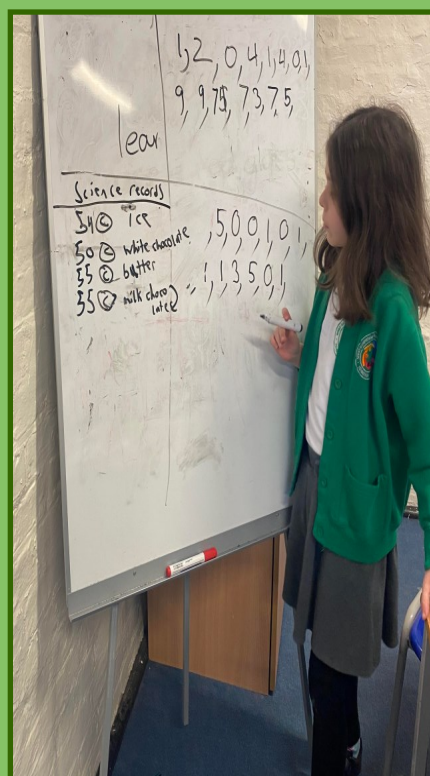 1,2,0,4,1,4,0,1,
9,9,75,7,3,7,5,
lear
Science records
54 © ice
50 © white chocolate
55 © butter
55 © milk choco
late
,5,0,0,1,0,1,
1,1,3,5,0,1,